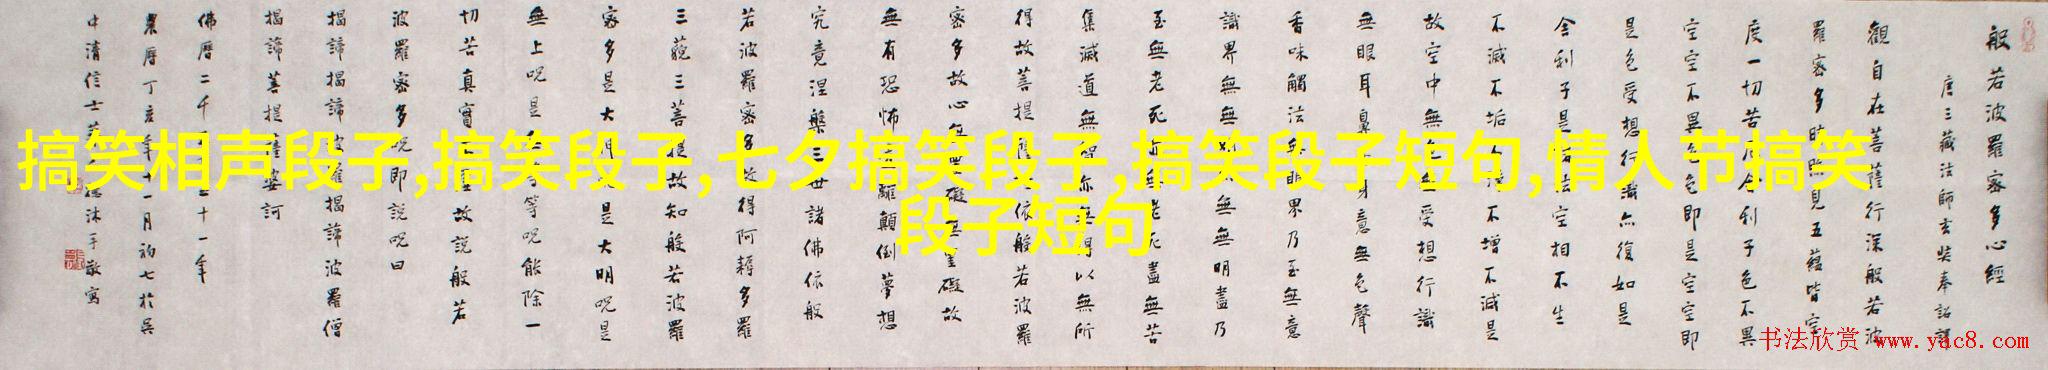 般若波羅蜜多心經
唐三藏法師玄奘奉詔譯
觀自在菩薩行深般若波
羅蜜多時照見五蘊皆空
度一切苦厄舍利子色不異
空空不異色色即是空空即
是色受想行識亦復如是
舍利子是諸法空相不生
不滅不垢不淨不增不減是
故空中無色無受想行識
無眼耳鼻舌身意無色聲
香味觸法無眼界乃至無意
識界無無明亦無無明盡乃
至無老死亦無老死盡無苦
集滅道無智亦無得以無所
得故菩提薩埵依般若波羅
蜜多故心無罣礙無罣礙故
無有恐怖遠離顛倒夢想
究竟涅槃三世諸佛依般
若波羅蜜多故得阿耨多羅
三藐三菩提故知般若波羅
蜜多是大神呪是大明呪是
無上呪是無等等呪能除一
切苦真實不虛故說般若
波羅蜜多呪即說呪曰
揭諦揭諦波羅揭諦波羅僧
揭諦菩提薩婆訶
佛曆二千五百五十一年
農曆丁亥年十一月初七於吳
中清信士沐手敬寫
搞笑相声段子,搞笑段子,七夕搞笑段子,搞笑段子短句,情人节搞笑
段子短句
书法欣赏 www.yac8.com